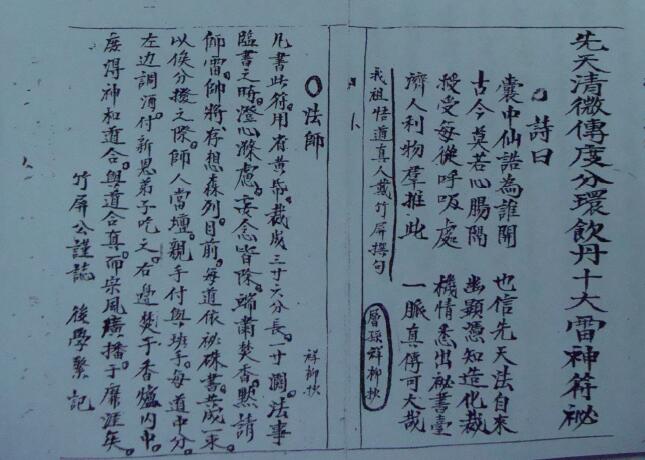 先天清微傳度分環飲丹十大雷神符祕
詩曰
囊中仙語為誰開 也信先天法自來
古今莫若心腸隔 幽顯憑知造化裁
授受每從呼吸處 機情悉出祕書臺
濟人利物羣推此 一脈真傳可大哉
我祖悟道真人戴竹屏撰句
層孫祥柳抄
祥柳抄
法師
凡書此符用省黃帋裁成三寸六分長一寸濶法事
臨書之時澄心滌慮妄念皆除端肅焚香黙請
師雷帥將存想森列目前每道依祕硃書共成一束
以俟分撥之際師人當壇親手付與班手每道中分
左边調酒付新恩弟子吃之右邊焚于香爐內中
庶得神和道合與道合真而宗風廣播于靡涯矣
竹屏公謹誌 後學繄記